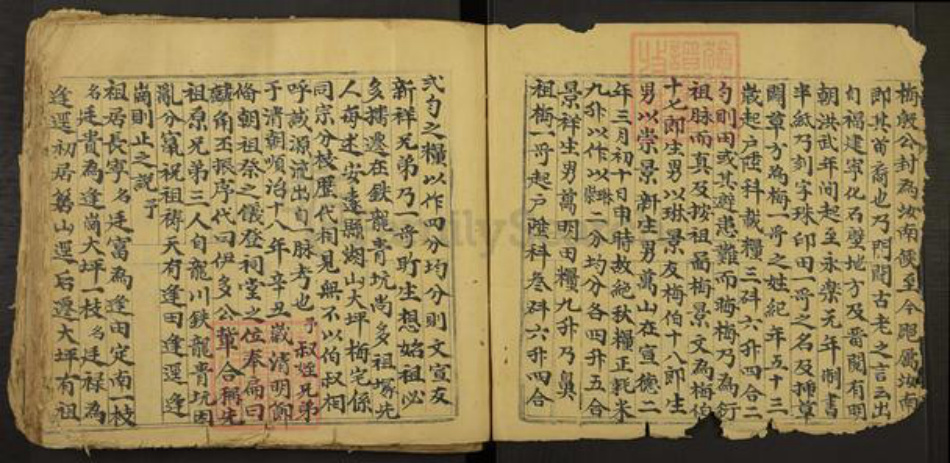 梅殷公封為汝南侯至今照屬汝南
即其苗裔也乃門閭古老之言云出
自福建寧化石壁地方及審閱有明
朝洪武年間起至永樂元年制書
半紙乃刻字珠印田一哥之名及揷草
閣章方為梅一哥之姓紀年五十三
歲起戶陞科載糧三斗六升四合二
勺則田或其避患難而騎梅乃為衍
祖脉而真及按祖啚梅景文為梅伯
十七郎生男以琳景友梅伯十八郎生
男以崇景新生男萬山在宣德二
年三月初十日申時故絕秋糧正耗米
九升以作以琳二分均分各四升五合
景祥生男萬明田糧九升乃與
祖梅一哥起戶陞科叁斗六升四合
弍勺之糧以作四分均分則文宣友
新祥兄弟乃一哥所生想始祖必
多擕遷在鉄龍青坑尚多祖塚先
人每述安遠縣湖山大坪梅宅係
同宗分枝歷代相見無不以伯叔相
呼試源流出自脉考也 予叔姪兄弟
于清朝順治十八年辛丑歲清明節
俻朝祖祭之儀登祠堂之位奉扁曰
麟角丕振序代曰伊多公輩合稱先
祖原兄弟三人自龍川鉄龍青坑因
亂分竄祝祖祷天有逢田逢逕逢
崗則止之說予
祖居長寧名廷富為逢田定南一枝
名廷貴為逢崗大坪一枝名廷禄為
逢逕初居努山逕后遷大坪有祖